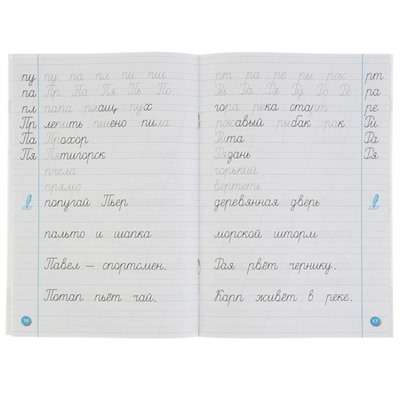 пу пу па пл пи пш
па Пр Па Пя Пь По
пл папа плащ пух
Пр лепить пшено пила
Па Прохор
Пя Пятигорск
пчела
прямо
попугай Пьер
пальто и шапка
Павел — спортсмен.
Потап пьёт чай.
16
рт ра ре ры рж рт
Ри Ра Ря Ру Ро Ре ра
гора река старт ре
ржавый рыбак рак Ри
Рита Ра
Рязань Ря
горький
вертеть
деревянная дверь
морской шторм
Рая рвёт чернику.
Карп живёт в реке.
17